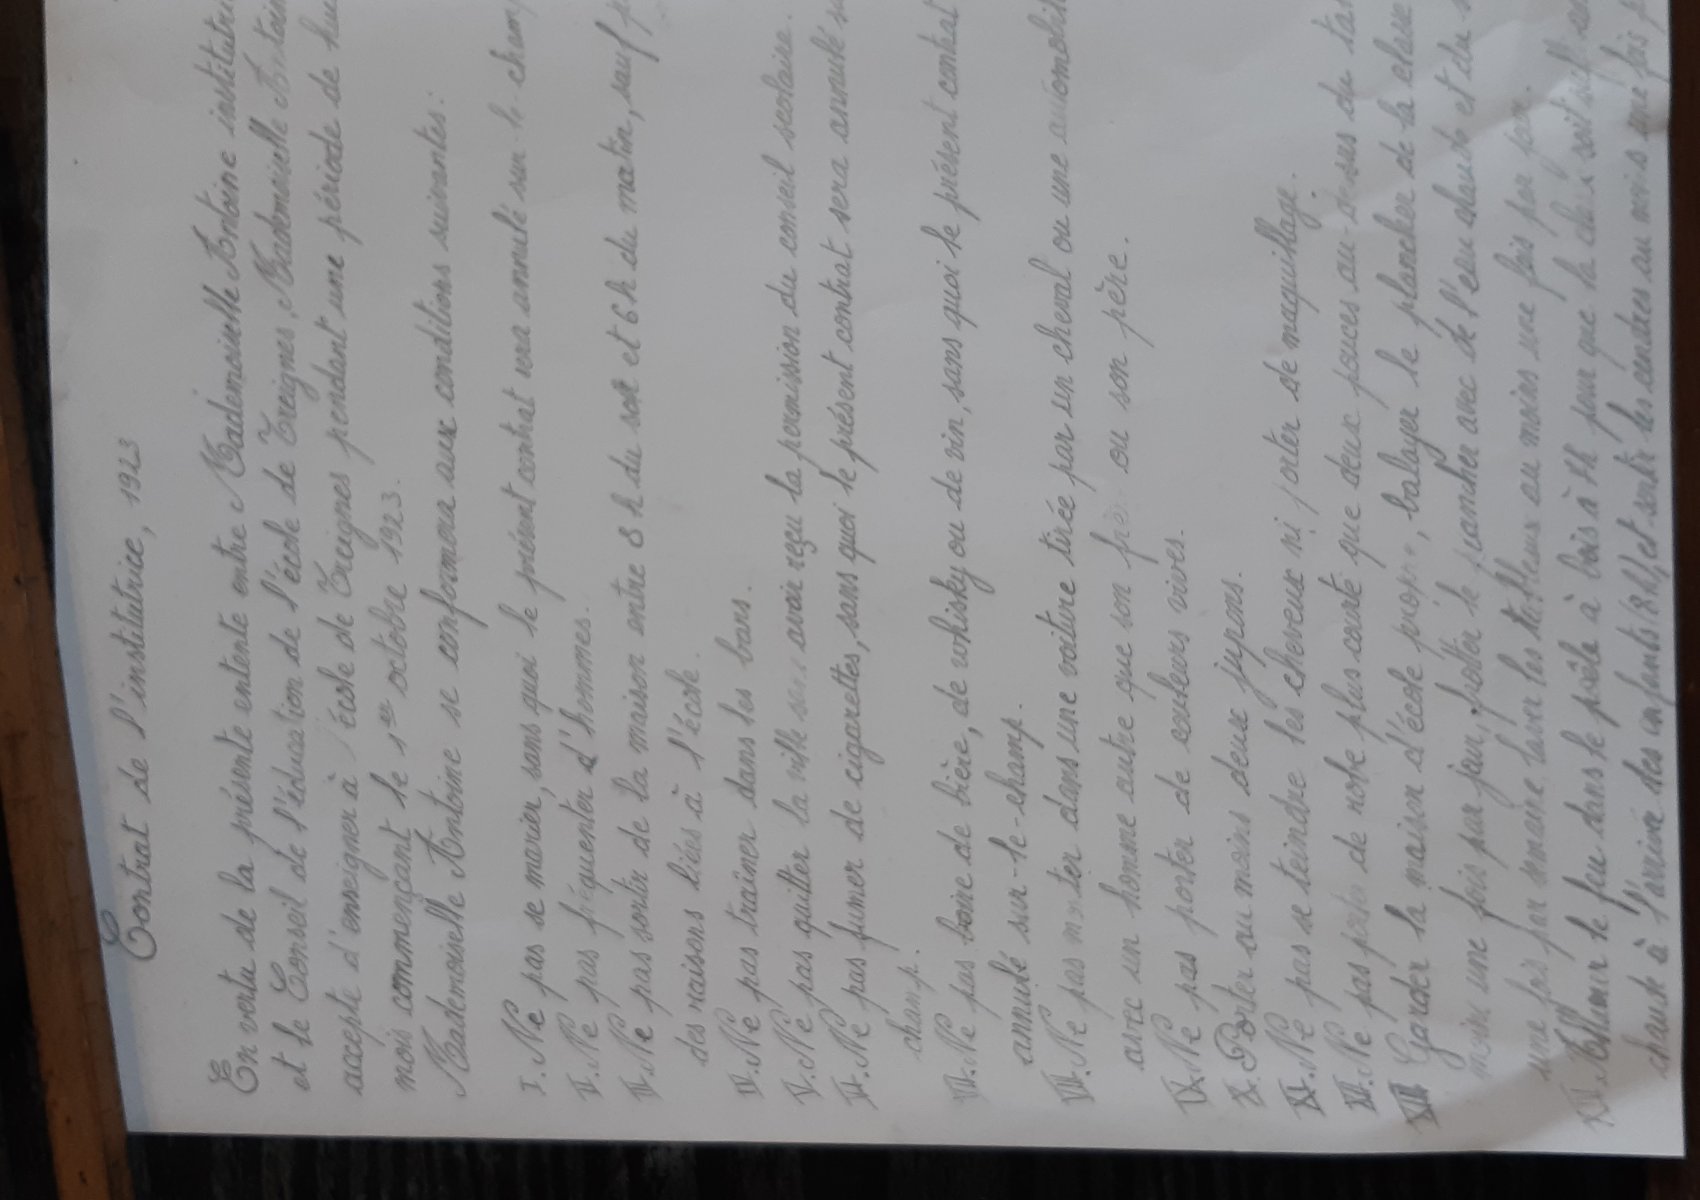 Contrat de l'institutrice, 1923
En vertu de la présente entente entre Mademoiselle Antoine institutri
et le Conseil de l'éducation de l'école de Treignes, Mademoiselle Antoin
accepte d'enseigner à l'école de Treignes pendant une période de hui
mois commençant le 1er octobre 1923.
Mademoiselle Antoine se conformera aux conditions suivantes:
I. Ne pas se marier, sans quoi le présent contrat sera annulé sur le champ
II. Ne pas fréquenter d'hommes.
III. Ne pas sortir de la maison entre 8 h du soir et 6 h du matin, sauf p
des raisons liées à l'école.
IV. Ne pas traîner dans les bars.
V. Ne pas quitter la ville sans avoir reçu la permission du conseil scolaire.
VI. Ne pas fumer de cigarettes, sans quoi le présent contrat sera annulé su
champ.
VII. Ne pas boire de bière, de whisky ou de vin, sans quoi le présent contrat
annulé sur-le-champ.
VIII. Ne pas monter dans une voiture tirée par un cheval ou une automobil
avec un homme autre que son frère ou son père.
IX. Ne pas porter de couleurs vives.
X. Porter au moins deux jupons.
XI. Ne pas se teindre les cheveux ni porter de maquillage.
XII. Ne pas porter de robe plus courte que deux pouces au-dessus du tal
XIII Garder la maison d'école propre, balayer le plancher de la classe
moins une fois par jour, frotter le plancher avec de l'eau chaude et du s
une fois par semaine laver les tableaux au moins une fois par jour.
Allumer le feu dans le poêle à bois à 7h pour que la classe soit
chaude à l'arrivée des enfants (8h), et sortir les cendres au moins une fois p